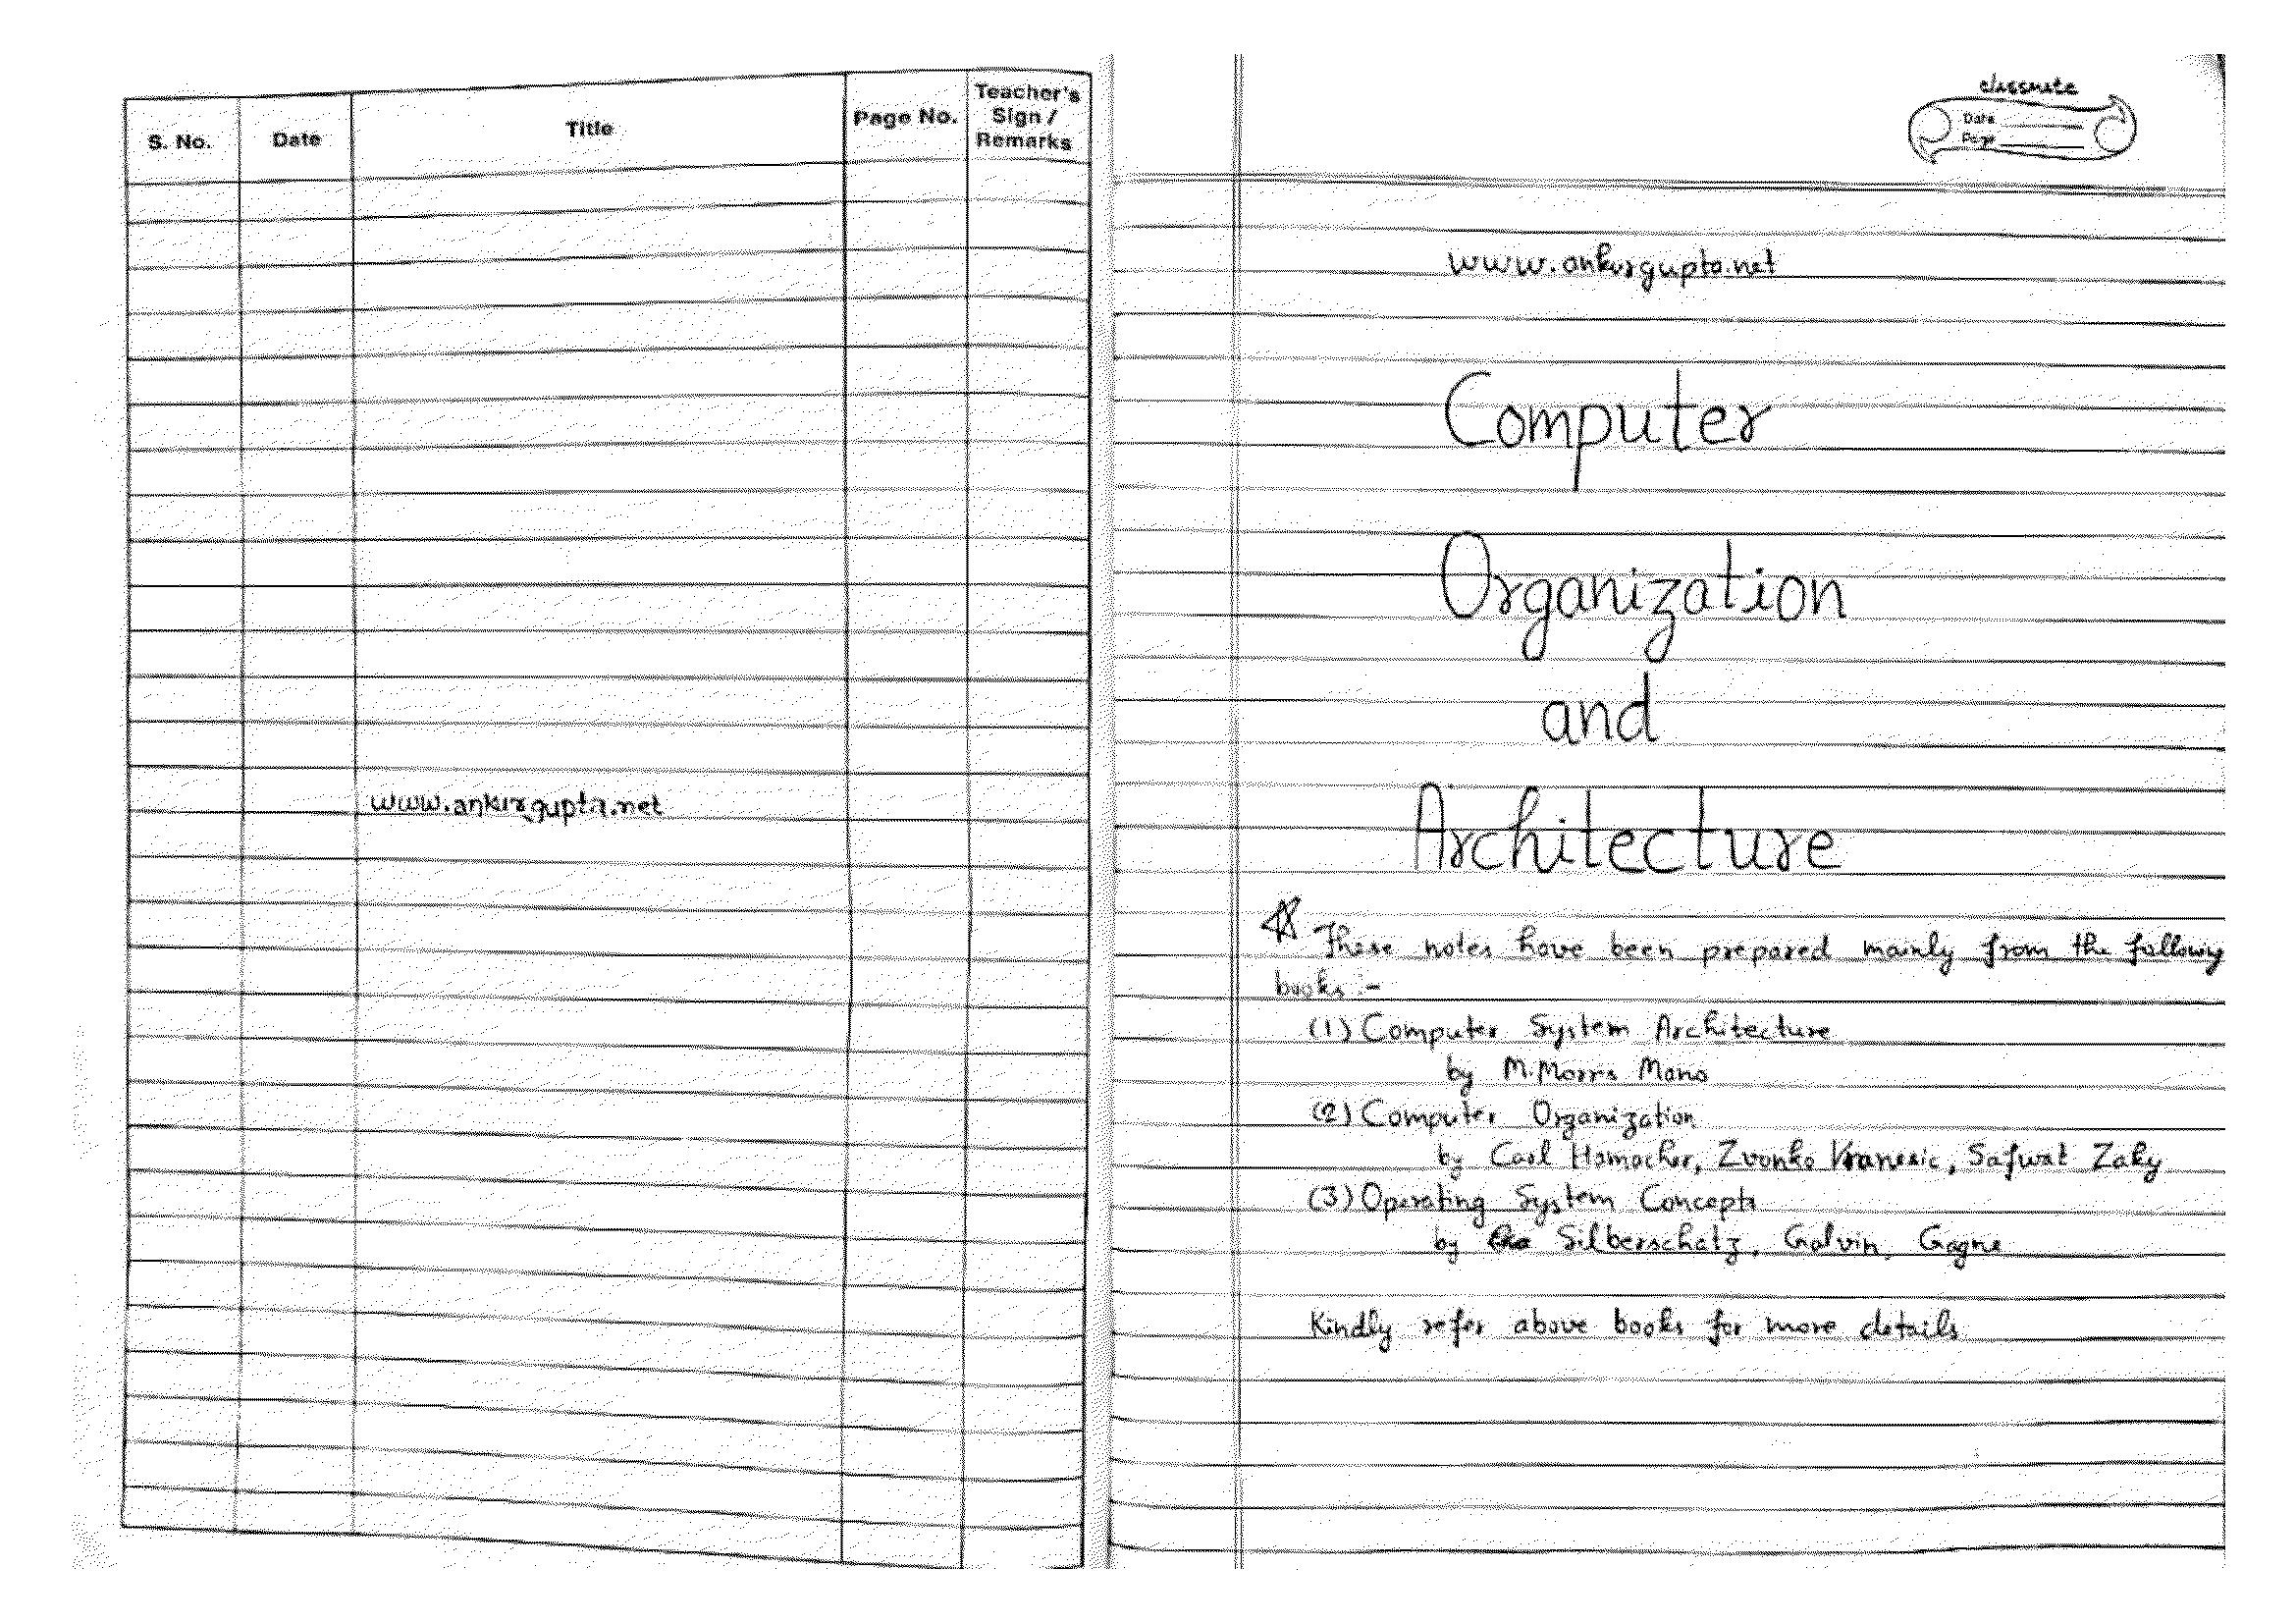 S. No.
Date
Title
Page No.
Teacher's
Sign /
Remarks
www.ankurgupta.net
classmate
Date
Page
www.ankurgupta.net
Computer
Organization
and
Architecture
These notes have been prepared mainly from the following
books :-
(1) Computer System Architecture
by M. Morris Mano
(2) Computer Organization
by Carl Hamacher, Zvonko Vranesic, Safwat Zaky
(3) Operating System Concepts
by Silberschatz, Galvin, Gagne
Kindly refer above books for more details